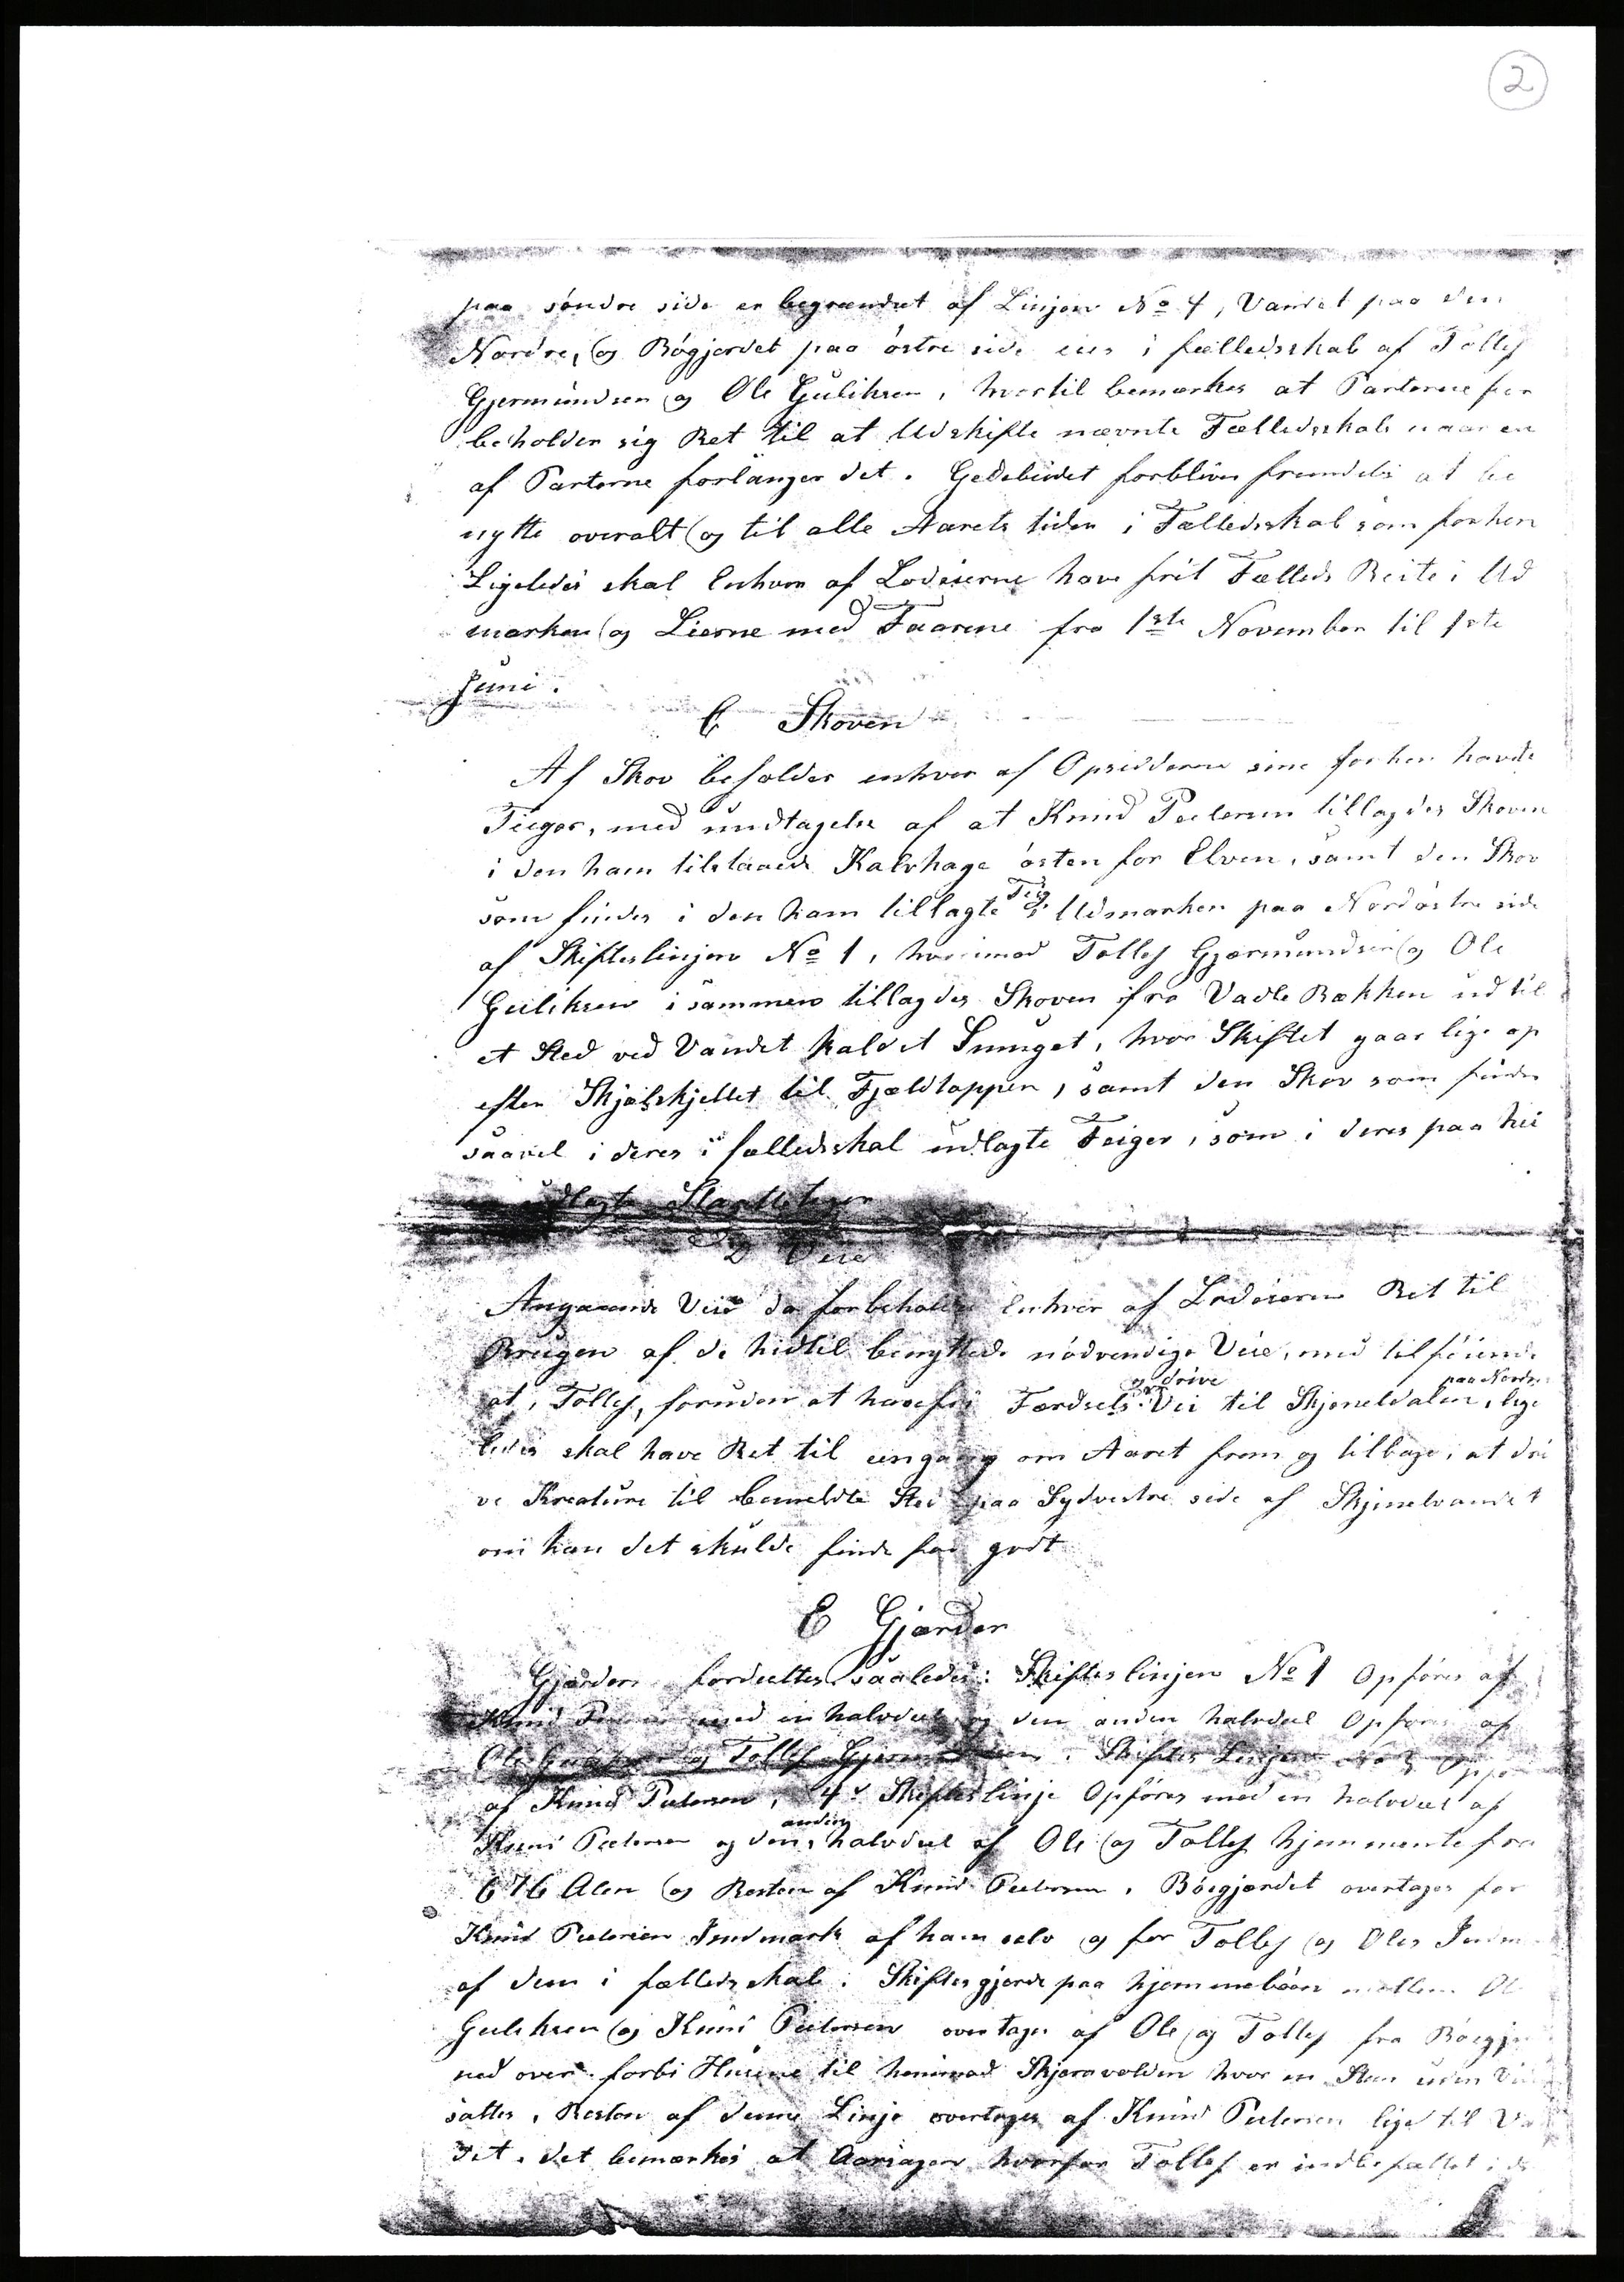 2
paa söndre side er begrændset af Linjen No 4, Vandet paa den
Nordre, og Bögjerdet paa östre side eies i fælledsskab af Tollef
Gjermundsen og Ole Guliksen, hvortil bemærkes at Parterne for
beholder sig Ret til at Udskifte nævnte Fælledsskab naar en
af Parterne forlanger det. Gedebeidet forbliver fremdeles at be
nytte overalt og til alle Aarets tider i Fælledsskab som forhen
Ligeledes skal Enhver af Lodeierne have frit Fælleds Beite i Ud
marken og Lierne med Faarene fra 1ste November til 1ste
Juni.
C Skoven
Af Skov beholder enhver af Opsidderne sine forhen havde
Teiger, med undtagelse af at Knud Pedersen tillagdes Skoven
i den ham tilstaaede Kalvhage östen for Elven, samt den Skov
som findes i den ham tillagte Teig i Udmarken paa Nordöstre side
af Skifteslinjen No 1, hvorimod Tollef Gjermundsen og Ole
Guliksen i sammen tillagdes Skoven fra Vadle Bækken ud til
et Sted ved Vandet kaldet Smuget, hvor Skiftet gaar lige op
efter Skjelskjellet til Fjeldtoppen, samt den Skov som findes
saavel i deres i fælledsskab udlagte Teiger, som i deres paa hei
udlagte Slaatteteiger
D Veie
Angaaende Veie da forbeholder Enhver af Lodeierne Ret til
Brugen af de hidtil benyttede nödvendige Veie, med tilföiende
at, Tollef, foruden at have fri Færdsels og drive Vei til Skjeneldalen paa Nordre, lige
ledes skal have Ret til eengang om Aaret frem og tilbage, at dri
ve Kreature til bemeldte Sted paa Sydvestre side af Skjenelvandet
om han det skulde finde for godt
E Gjærder
Gjærdere fordeeltes saaledes: Skifteslinjen No 1 Opföres af
Knud Pedersen med en halvdeel og den anden halvdeel Opföres af
Ole Guliksen og Tollef Gjermundsen. Skiftes Linjen No 2 Opfö
af Knud Pedersen, 4de Skifteslinje Opföres med en halvdeel af
Knud Pedersen og den anden halvdeel af Ole og Tollef hjemmente fra
616 Alen og Resten af Knud Pedersen. Böegjærdet overtages for
Knud Pedersen Indmark af ham selv og for Tollef og Oles Indm
af dem i fælledsskab. Skiftesgjerde paa hjemmeböen mellem Ol
Guliksen og Knud Pedersen overtages af Ole og Tollef fra Böegje
ned over forbi Husene til henimod Skjeravolden hvor en Steen uden Vid
sattes. Resten af denne Linje overtages af Knud Pedersen lige til Va
det. det bemærkes at Aarsagen hvorfor Tollef er indbefattet i de